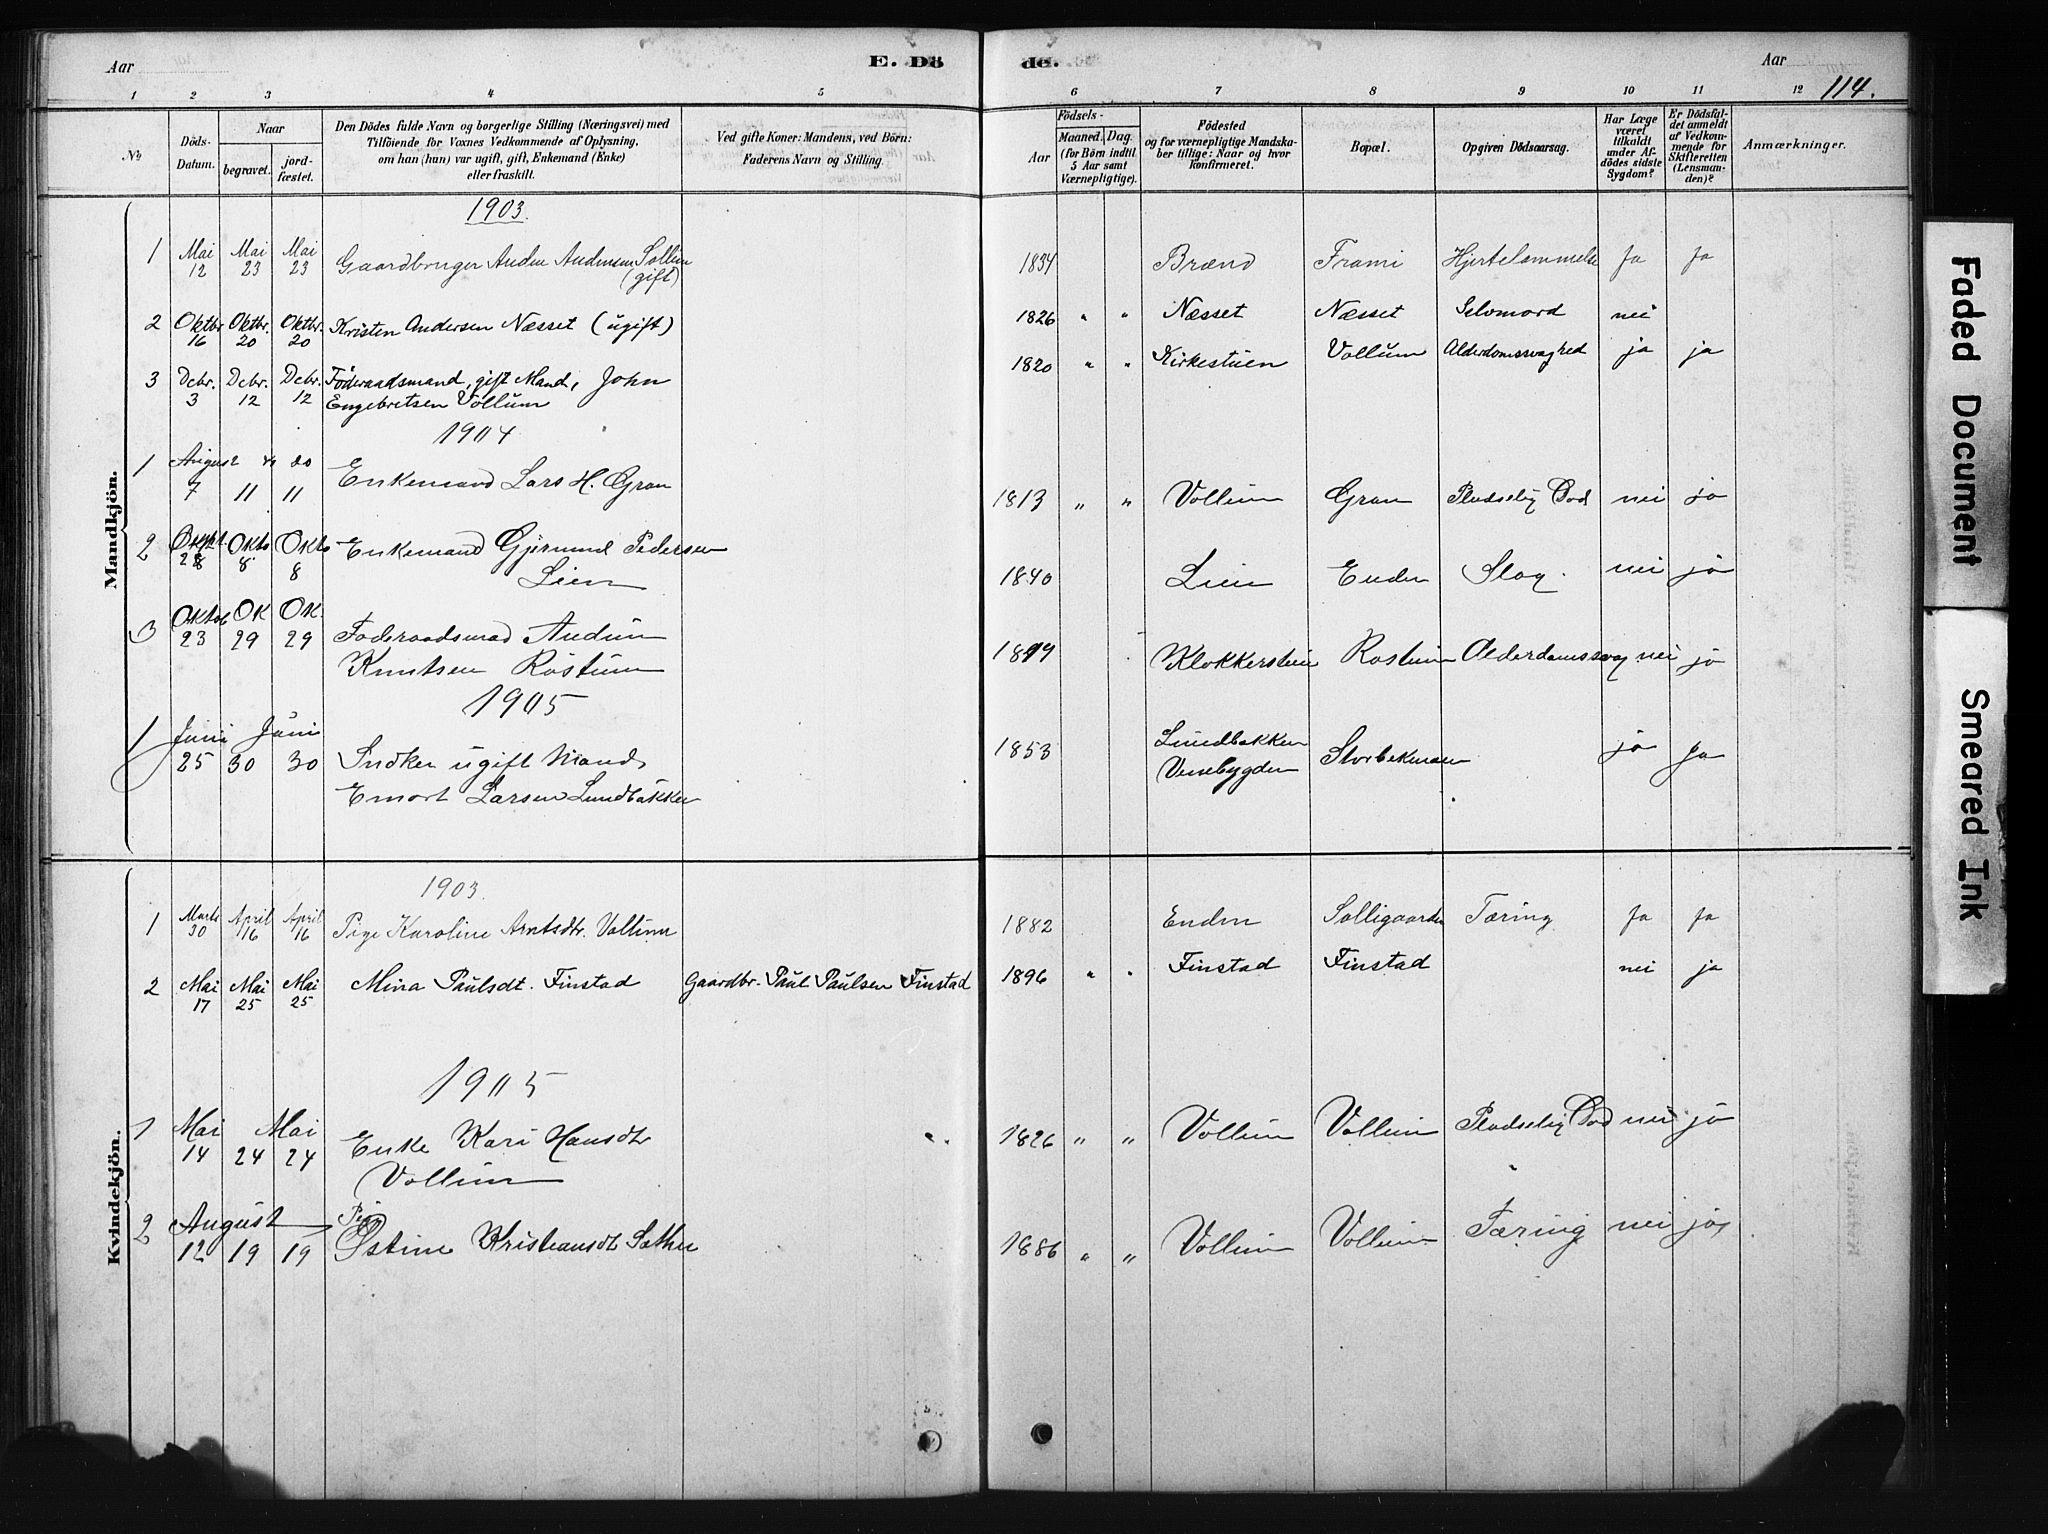 Aar
E. Dö
de.
Aar
114.
1 2 3 4 5 6 7 8 9 10 11 12
№
Döds-
Datum.
Naar
begravet.
jord-
fæstet.
Den Dödes fulde Navn og borgerlige Stilling (Næringsvei) med
Tilföiende for Voxnes Vedkommende af Oplysning,
om han (hun) var ugift, gift, Enkemand (Enke)
eller fraskilt.
Ved gifte Koner: Mandens, ved Börn:
Faderens Navn og Stilling.
Födsels-
Aar
Maaned. Dag.
(for Börn indtil
5 Aar samt
Værnepligtige).
Födested
og for værnepligtige Mandska-
ber tillige: Naar og hvor
konfirmeret.
Bopæl.
Opgiven Dödsaarsag.
Har Læge
været
tilkaldt
under Af-
dödes sidste
Sygdom?
Er Dödsfal-
det anmeldt
af Vedkom-
mende for
Skifteretten
(Lensman-
den)?
Anmærkninger.
Mandkjön.
1903.
1 Mai Mai Mai
12 23 23 Gaardbruger Anders Andersen Sollien 1834 Brænd Frami Hjertelammelse Ja Ja
(gift)
2 Oktbr. Oktbr. Oktbr. Kristen Andersen Næsset (ugift) 1826 " " Næsset Næsset Selvmord nei
16 20 20
3 Dcbr. Dcbr. Dcbr. Föderaadsmand, gift Mand, John 1820 " " Kirkestuen Vollum Alderdomssvaghed ja ja
3 12 12 Engebretsen Vollum
1904
1 August
7 11 11 Enkemand Lars H. Gran 1813 " " Vollum Gran Pludselig Död nei ja
2 Okto Okto Enkemand Gjermund Pedersen
28 8 8 Lien 1840 Lien Enden Slag. nei ja
3 Oktob OK OK
23 29 29 Föderaadsmad Audun
Knutsen Rostum 1819 Klokkerstuen Rostum Alderdomssvag nei ja
1905
1 Juni Juni
25 30 30 Snedker ugift Mand 1853 Lundbakken
Venebygden Storbekmoen ja Ja
Emort Larsen Lundbakken
Kvindekjön.
1903.
1 Marts April April
30 16 16 Pige Karoline Arntsdtr. Vollum 1882 Enden Solligaarden Tæring Ja Ja
2 Mai Mai Mai Mina Paulsdt. Finstad Gaardbr. Paul Paulsen Finstad 1896 " " Finstad Finstad nei ja
17 25 25
1905
1 Mai Mai
14 24 24 Enke Kari Hansdt 1826 " " Vollum Vollum Pludselig Död nei ja
Vollum
2 August Pige
12 19 19 Østine Kristiansdt Sæther 1886 " " Vollum Vollum Tæring nei ja
Faded Document
Smeared Ink